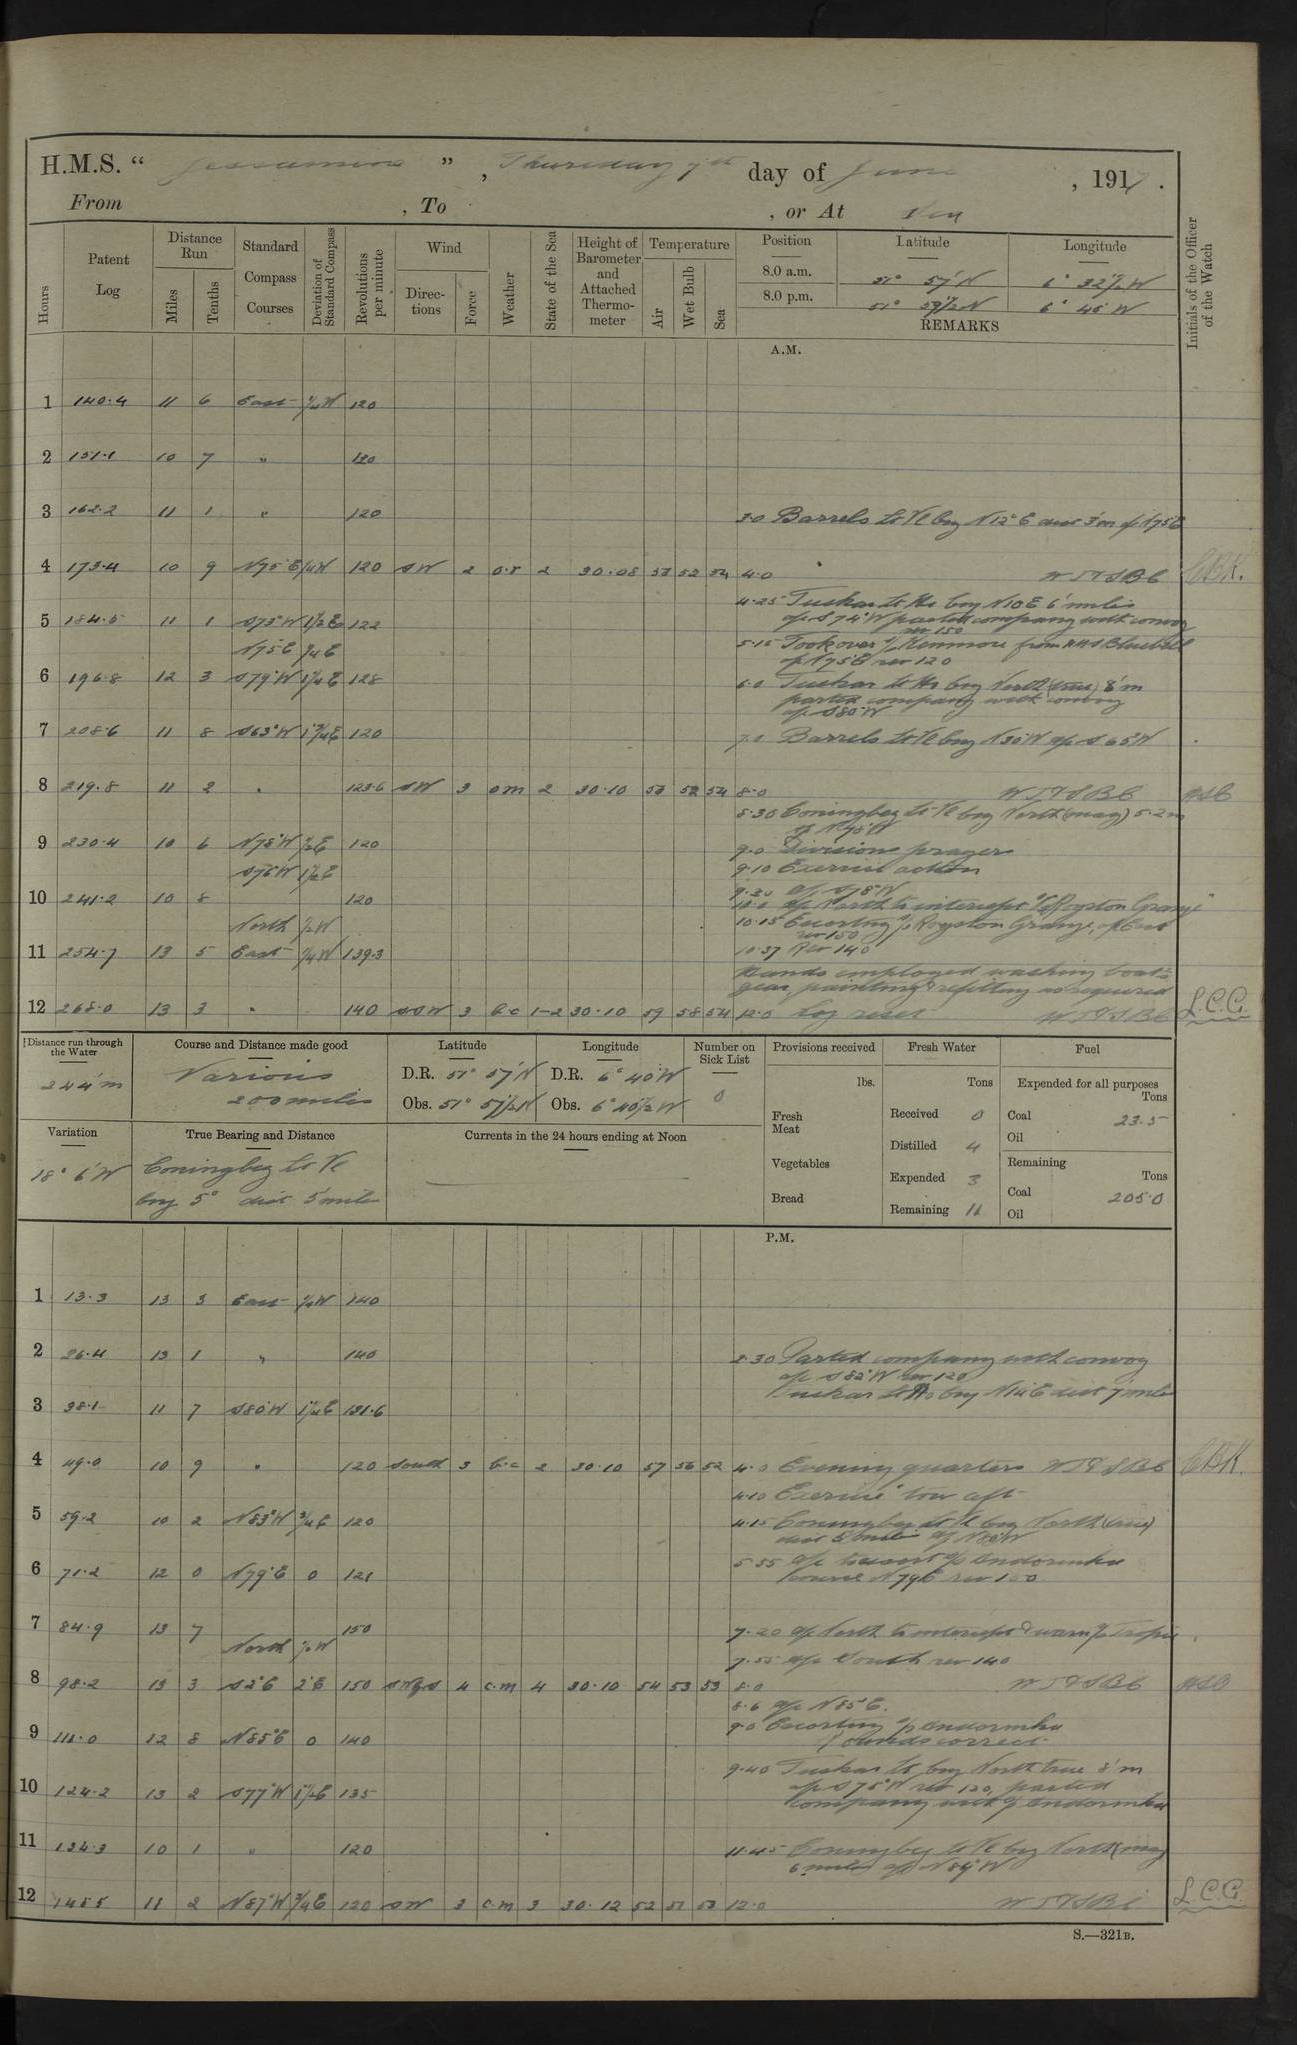 H.M.S. " Jessamine " , Thursday 7th day of June , 1917 .
From , To , or At Sea
Hours
Patent Log
Distance Run
Miles
Tenths
Standard Compass Courses
Deviation of Standard Compass
Revolutions per minute
Wind
Directions
Force
Weather
State of the Sea
Height of Barometer and Attached Thermometer
Temperature
Air
Wet Bulb
Sea
Position Latitude Longitude
8.0 a.m. 51° 57' N 6° 32½' W
8.0 p.m. 51° 59½ N 6° 45' W
REMARKS
Initials of the Officer of the Watch
A.M.
1 140.4 11 6 East ¼W 120
2 151.1 10 7 " 120
3 162.2 11 1 " 120 3.0 Barrels Lt Ve brg N12°E dist 3'm a/c N75E
4 173.4 10 9 N75°E ¼W 120 SW 2 o.r 2 30.08 53 52 54 4.0 WT&SBC CBK.
4.25 Tuskar Lt Ho brg N10E 6 miles
a/c S74°W parted company with convoy
rev 150
5 184.5 11 1 S73°W 1½E 122
5.15 Took over s/s Kenmore from HMS Bluebell
N75E ¼E
a/c N75°E rev 120
6 196.8 12 3 S79°W 1¼E 128 6.0 Tuskar Lt Ho brg North (true) 8'm
parted company with convoy
a/c S80°W
7 208.6 11 8 S63°W 1¾E 120 7.0 Barrels Lt Ve brg N30°W a/c S65°W
8 219.8 11 2 " 123.6 SW 3 o m 2 30.10 53 52 54 8.0 WT&SBC
8.30 Coningbeg Lt Ve brg North (mag) 5.2m
a/c N78°W
9 230.4 10 6 N78°W ½E 120 9.0 Divisions prayers
S76°W 1½E 9.10 Exercise action
9.30 a/c S78°W
10 241.2 10 8 120 10.0 a/c North to intercept s/s Royston Grange
North ½W 10.15 Escorting s/s Royston Grange, a/c East
rev 150
11 254.7 13 5 East ¼W 139.3 10.37 Rev 140
Hands employed washing boats
gear, painting & refitting as required
12 268.0 13 3 " 140 SSW 3 b.c 1-2 30.10 59 58 54 12.0 Log reset WT&SBC L.C.G.
Distance run through the Water
244'm
Course and Distance made good
Various
200 miles
Latitude Longitude
D.R. 51° 57' N D.R. 6° 40' W
Obs. 51° 57½ N Obs. 6° 40½ W
Number on Sick List
0
Provisions received
lbs.
Fresh Meat
Vegetables
Bread
Fresh Water
Tons
Received 0
Distilled 4
Expended 3
Remaining 11
Fuel
Expended for all purposes
Tons
Coal 23.5
Oil
Remaining
Tons
Coal 205.0
Oil
Variation
18° 6' W
True Bearing and Distance
Coningbeg Lt Ve
brg 5° dist 5 miles
Currents in the 24 hours ending at Noon
P.M.
1 13.3 13 3 East ¼W 140
2 26.4 13 1 " 140 2.30 Parted company with convoy
a/c S82°W rev 120
Tuskar Lt Ho brg N14°E dist 7 miles
3 38.1 11 7 S80°W 1¼E 131.6
4 49.0 10 9 " 120 South 3 b.c 2 30.10 57 56 52 4.0 Evening quarters WT&SBC CBK.
4.10 Exercise tow aft
5 59.2 10 2 N83°W ¾E 120 4.15 Coningbeg Lt Ve brg North (true)
dist 5 miles a/c N80W
5.55 a/c to escort s/s Endorinka
6 71.2 12 0 N79°E 0 121 course N79E rev 150
7 84.9 13 7 150 7.20 a/c North to intercept & warn s/s Tropic
North ½W
7.55 a/c South rev 140
8 98.2 13 3 S2°E 2°E 150 SW 4 c.m 4 30.10 54 53 53 8.0 WT&SBC
8.6 a/c N85°E.
9 111.0 12 8 N85°E 0 140 9.0 Escorting s/s Endorinka
Rounds correct
9.40 Tuskar Lt brg North true 8'm
10 124.2 13 2 S77°W 1¼E 135 a/c S75°W rev 120, parted
company with s/s Endorinka
11 134.3 10 1 " 120 11.45 Coningbeg Lt Ve brg North (mag)
6 miles a/c N84°W
12 145.5 11 2 N87°W ¾E 120 SW 3 c.m 3 30.12 52 51 53 12.0 WT&SBC L.C.G.
S.—321B.